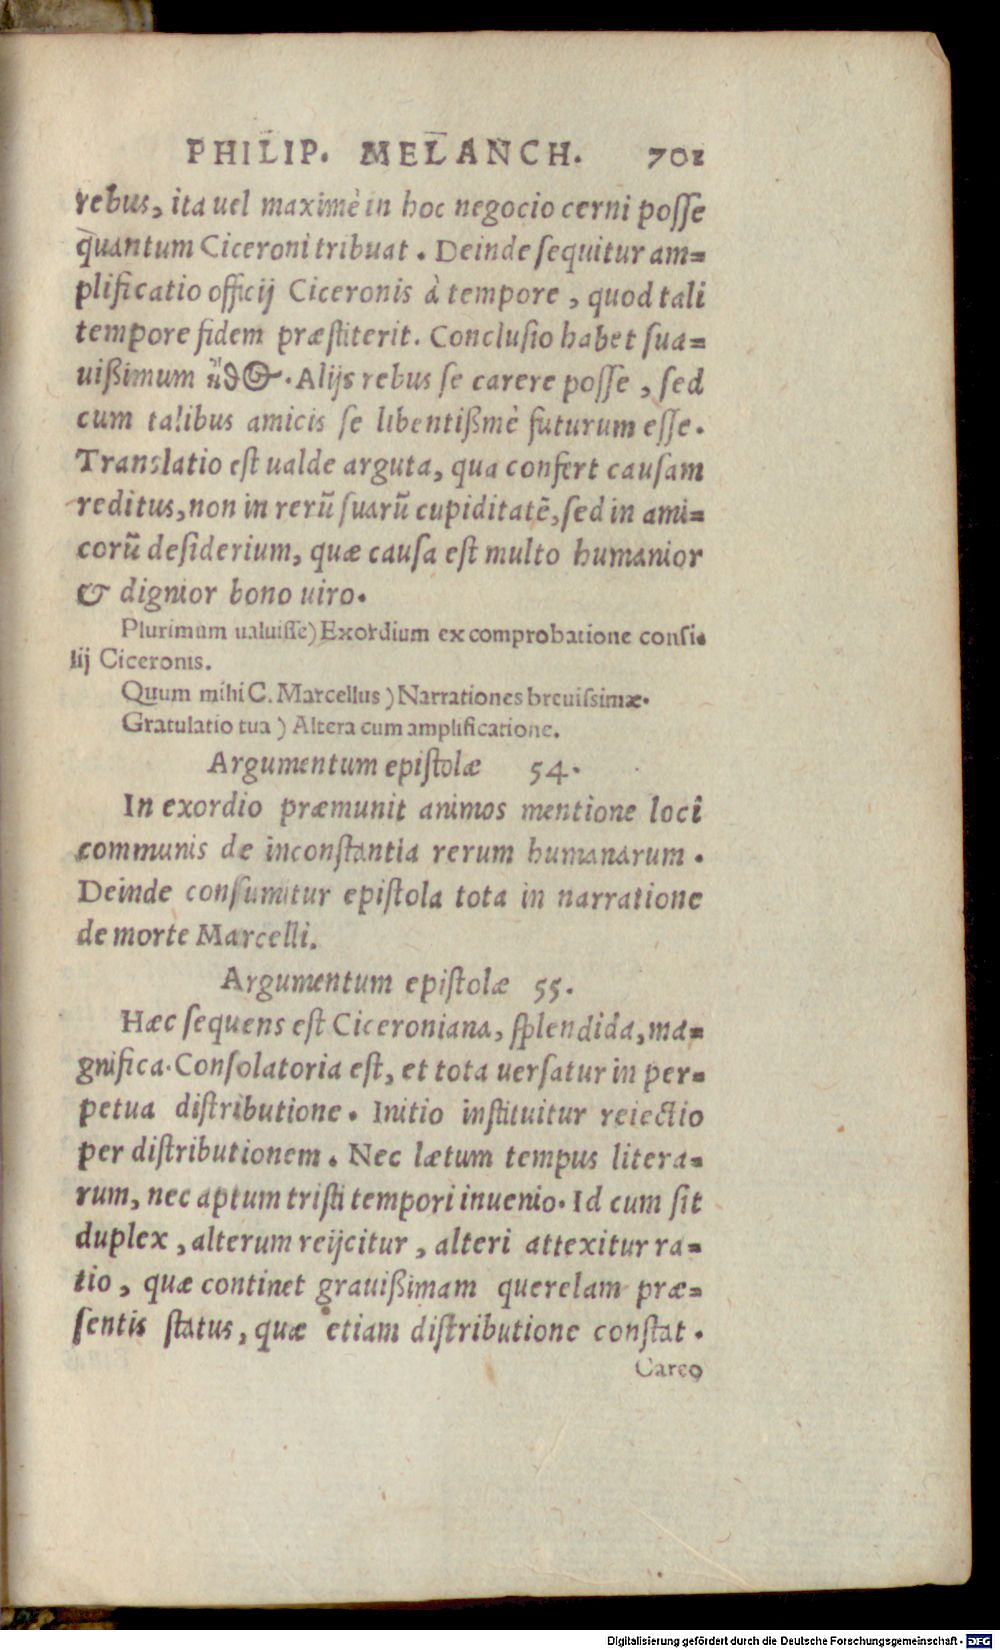 PHILIP. MELANCH. 701
rebus, ita uel maximè in hoc negocio cerni posse
quantum Ciceroni tribuat. Deinde sequitur am=
plificatio officij Ciceronis à tempore, quod tali
tempore fidem præstiterit. Conclusio habet sua=
uißimum ἦθος. Alijs rebus se carere posse, sed
cum talibus amicis se libentißmè futurum esse.
Translatio est ualde arguta, qua confert causam
reditus, non in rerū suarū cupiditatē, sed in ami=
corū desiderium, quæ causa est multo humanior
& dignior bono uiro.
Plurimum ualuisse) Exordium ex comprobatione consi-
lij Ciceronis.
Quum mihi C. Marcellus) Narrationes breuissimæ.
Gratulatio tua) Altera cum amplificatione.
Argumentum epistolæ 54.
In exordio præmunit animos mentione loci
communis de inconstantia rerum humanarum.
Deinde consumitur epistola tota in narratione
de morte Marcelli.
Argumentum epistolæ 55.
Hæc sequens est Ciceroniana, splendida, ma=
gnifica. Consolatoria est, et tota uersatur in per=
petua distributione. Initio instituitur reiectio
per distributionem. Nec lætum tempus litera=
rum, nec aptum tristi tempori inuenio. Id cum sit
duplex, alterum reijcitur, alteri attexitur ra=
tio, quæ continet grauißimam querelam præ=
sentis status, quæ etiam distributione constat.
Careo
Digitalisierung gefördert durch die Deutsche Forschungsgemeinschaft - DFG